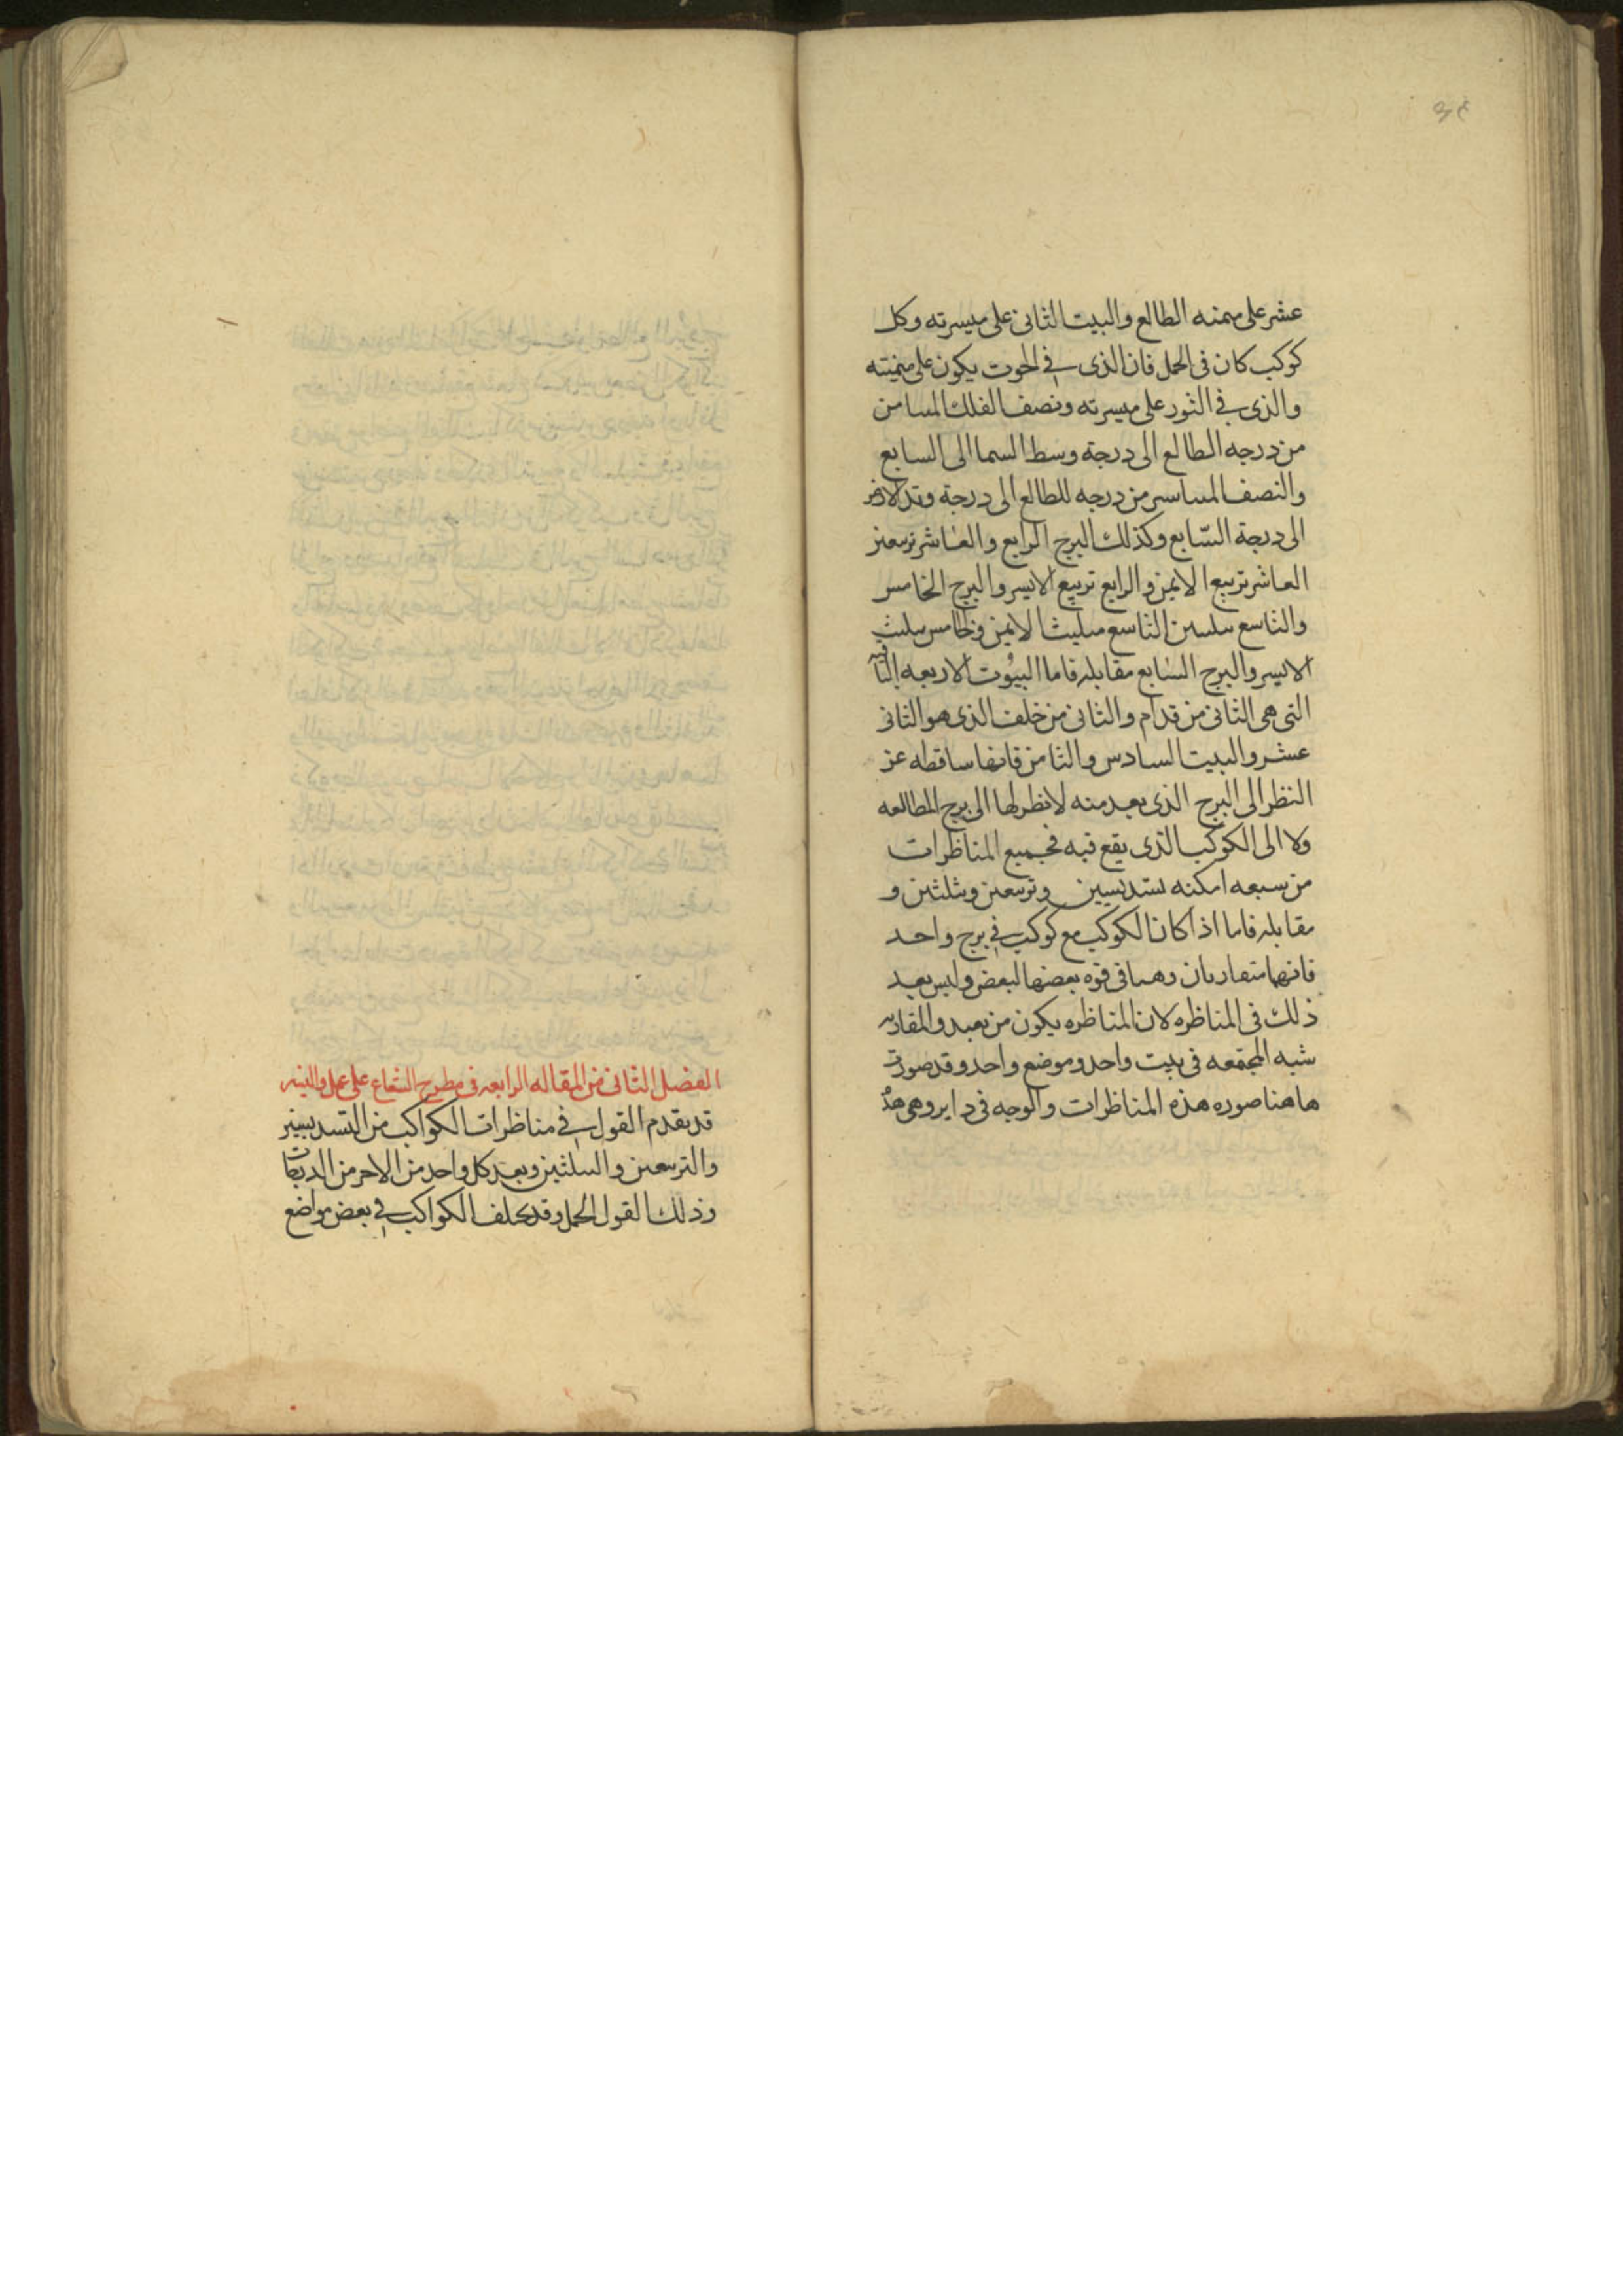 عشر على ميمنه الطالع والبيت الثانى على ميسرته وكل
كوكب كان فى الحمل فان الذى فى الحوت يكون على ميمنته
والذى فى الثور على ميسرته ونصف الفلك المسامن
من درجه الطالع الى درجة وسط السما الى السابع
والنصف المساسر من درجه للطالع الى درجة وتد الارض
الى درجة السّابع وكذلك البرج الرابع والعاشر تربيعين
العاشر تربيع الايمن والرابع تربيع الايسر والبرج الخامس
والتاسع تثليثين التاسع تثليث الايمن وخامس تثليث
الايسر والبرج السابع مقابله فاما البيُوت الاربعه الباقيه
التى هى الثانى من قدام والثانى من خلف الذى هو الثانى
عشر والبيت السادس والثامن فانها ساقطه عن
النظر الى البرج الذى يعد منه لا نظر لها الى برج المطالعه
ولا الى الكوكب الذى يقع فيه فجميع المناظرات
من سبعه امكنه تسديسين وتربيعين وتثلثين و
مقابله فاما اذا كان الكوكب مع كوكب فى برج واحد
فانهما متقاربان وهما فى قوه بعضها لبعض وليس يعد
ذلك فى المناظره لان المناظره يكون من بعيد والمقاربه
شبه المجتمعه فى بيت واحد وموضع واحد وقد صورت
هاهنا صوره هذه المناظرات والوجه فى داير وهى هذه
الفصل الثانى من المقاله الرابعه فى مطرح الشعاع على عمل واليس
قد يقدم القول فى مناظرات الكواكب من التسديسين
والتربيعين والتثلثين وبعد كل واحد من الاخر من الدرجات
وذلك القول الجمل وقد يخلف الكواكب فى بعض مواضع